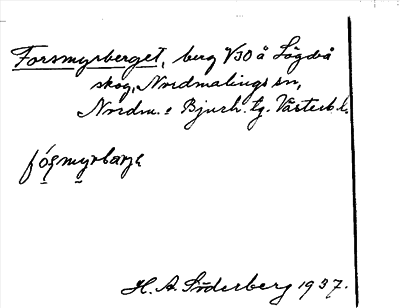 Forsmyrberget, berg V30 å Lögdeå
skog, Nordmalings sn,
Nordm. o Bjurh. tg. Västerb. l.
H. A. Söderberg 1937.